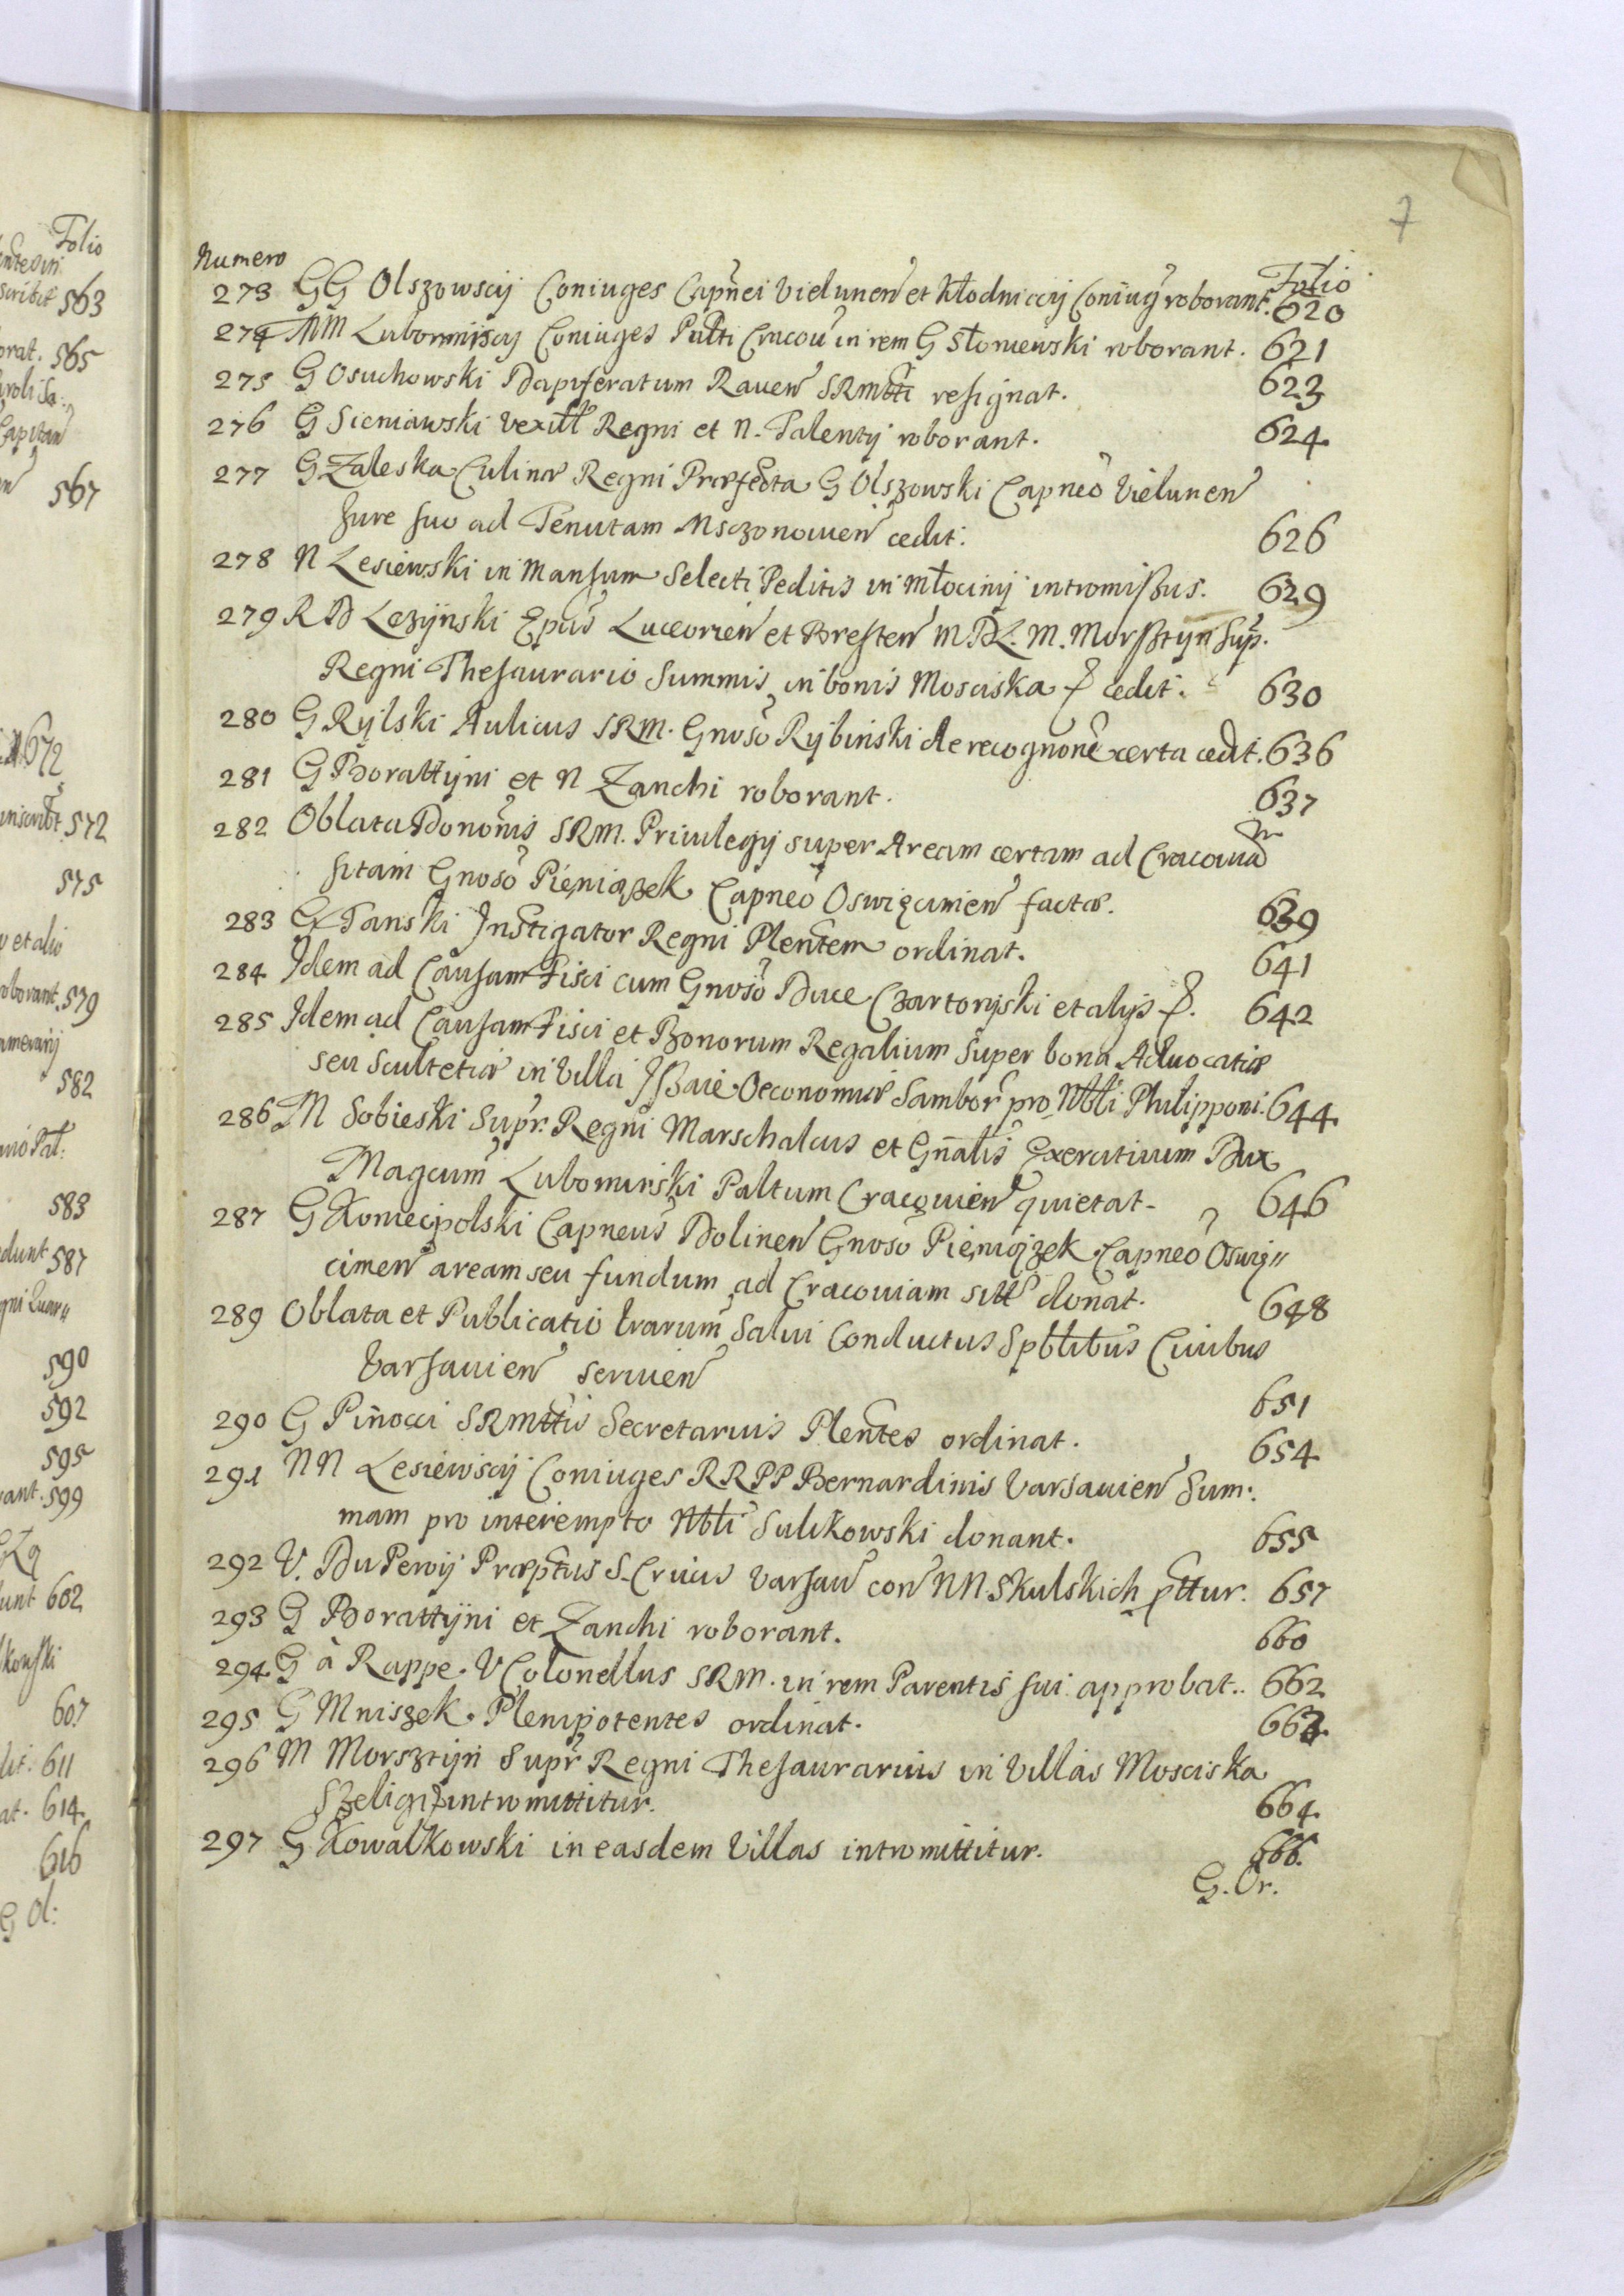 7
Numero Folio
273 GG Olszowscij Coniuges Capnei Vielunen et Kłodniccij Coniug roborant. 620
274 MM Lubormiscij Coniuges Palti Cracou in rem G Słoniewski roborant. 621
275 G Osuchowski Dapiferatum Rauen SRMtti resignat. 623
276 G Sieniawski Vexill Regni et N. Talentij roborant. 624
277 G Zaleska Culinæ Regni Præfecta G Olszowski Capneo Vielunen
Jure suo ad Tenutam Msczonouien cedit. 626
278 N Lesiewski in Mansum Selecti Peditis in Młocinij intromissus. 629
279 R D Lezijnski Epus Luceorien et Bresten M D L. M. Morsztijn Sup.
Regni Thesaurario Summis in bonis Mosciska & cedit. 630
280 G Rylski Aulicus SRM. Gnoso Rybinski de recognone certa cedit. 636
281 G Borattijni et N Zanchi roborant. 637
282 Oblata Dononis SRM. Priuilegij super Aream certam ad Cracouia
sitam Gnoso Pieniązek Capneo Oswięcimen factæ. 639
283 G Tanski Instigator Regni Plentem ordinat. 641
284 Idem ad Causam Fisci cum Gnoso Duce Czartoryski et alijs &. 642
285 Idem ad Causam Fisci et Bonorum Regalium Super bona Aduocatiæ
seu Scultetiæ in Villa Isaie Oeconomiæ Sambor pro Nbli Philipponi. 644
286 M Sobieski Supr. Regni Marschalcus et Gnalis Exercituum Dux
Magcum Lubomirski Paltum Cracouien quietat. 646
287 G Koniecpolski Capneus Dolinen Gnoso Pieniązek Capneo Oswię"
cimen aream seu fundum ad Cracouiam sitt donat. 648
289 Oblata et Publicatio trarum Salui Conductus Spblibus Ciuibus
Varsauien seruien 651
290 G Pinocci SRMttis Secretarius Plentes ordinat. 654
291 NN Lesiewscij Coniuges RRPP Bernardinis Varsauien Sum:
mam pro interempto Nbli Sulikowski donant. 655
292 V. Du Peroij Præptus S. Crucis Varsau con NN Skulskich pttur. 657
293 G Borattijni et Zanchi roborant. 660
294 G à Rappe. V Colonellus SRM. in rem Parentis sui approbat. 662
295 G Mniszek. Plenipotentes ordinat. 663
296 M Morsztijn Supr Regni Thesaurarius in Villas Mosciska
Szeligi & intromittitur. 664
297 G Kowalkowski in easdem Villas intromittitur. 666.
G. Or.
Folio
563
565
567
672
572
575
et alio
roborant. 579
582
583
587
590
592
595
599
602
607
611
614
616
G Ol: